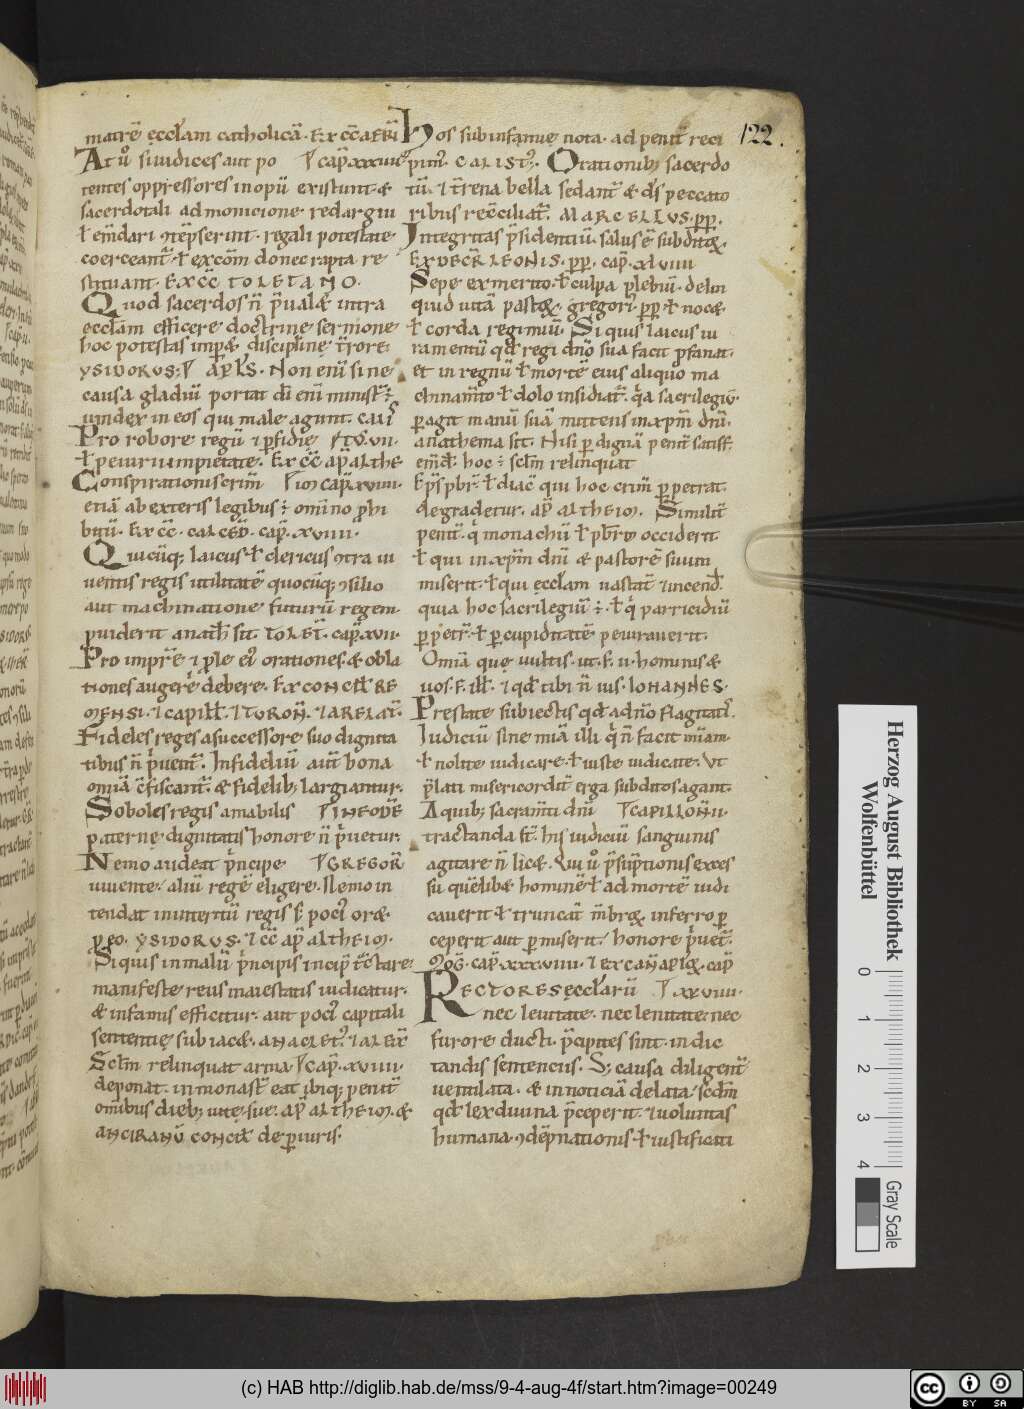 122.
matrē ęccƚam catholicā. Ex cc̄ AFRĪ
At ů si iudices aut po capͭ xxxiiii
tentes oppressores inopū existunt. &
sacerdotali admonicione redargui
ƚ em̄dari ꝯtēpserint. regali potestate
coerceantͬ. ƚ excōm donec rapta re
stituant. EX CC̄ TOLETANO.
Quod sacerdos n̄ p̄ualæ intra
eccƚam efficere doctrine sermone
hoc potestas imꝑæ disciplinę t̄rore.
YSIDORVS; APƚS. Non enī sine
causa gladiū portat dī enī minisͭ ÷
uindex in eos qui male agunt.
Pro robore regū ⁊ ꝑfidię
ƚ peiurii impietate. EX CC̄ AP̄ ALTHE
Conspirationis crim̄ capͭ xviiii.
etiā ab exteris legibus ÷ omīno ꝓhi
bitū. EX CC̄. CALCED̄. cap̄. xviiii.
Quicūqꝫ laicus ƚ clericus ꝯtra iu
uentus regis utilitatē quocūqꝫ ꝯsilio
aut machinatione futurū regem
ꝓuiderit anatħ sit. TOLET̄. cap̄. xvii.
Pro impr̄e ⁊ ꝓle eiꝰ orationes & obla
tiones augere debere. EX CONCIƚ RE
MENSI. ⁊ CAPIƚƚ. ⁊ TVRON̄. ⁊ ARELAT̄.
Fideles reges a successore suo dignita
tibus n̄ pͥuentͬ. Infideliū aut̄ bona
omīa c̄fiscantͬ. & fidelibꝫ largiantur.
Soboles regis amabilis IN EODĒ
paternę dignitatis honore n̄ pͥuetur.
Nemo audeat pͥncipe GREGOR̄
uiuente. aliū regē eligere. Nemo in
tendat in uitertū regis s; pociꝰ oræ
ꝓ eo. YSIDORVS. ⁊ CC̄ AP̄ ALTHEIM.
Si quis in malū pͥncipis incip̄ t̄ctare
manifeste reus maiestatis iudicatur.
& infamis efficitur. aut pociꝰ capitali
sententię subiacæ. ANACLETꝰ. ⁊ ALEX̄
Scƚm relinquat arma. cap̄. xviiii.
deponat. in monasͭ eat ibiqꝫ penitͭ
omībus diebꝫ uitę suę. AP̄ ALTHEIM. &
ANCIRANŪ CONCIƚ de ꝑiuris.
Hos sub infamię nota. ad penitͭ reci
pimꝰ. CALISTꝰ. Orationibꝫ sacerdo
tū. ⁊ t̄rena bella sedantͬ & dͥs peccato
ribus rec̄ciliatͬ. MARCELLVS. pp̄.
Integritas p̄sidentiū. salus ē subditoꝝ.
EX DECR̄ LEONIS. pp̄. cap̄. xlviiii
Sepe ex merito. ƚ culpa plebiū. delin
quid uitā pastoꝝ. gregoriꝰ pp̄ ƚ nocæ
ƚ corda regimiū. Si quis laicus iu
ramentū qđ regi dn̄o suo facit ꝓfanat.
et in regnū ƚ mortē eius aliquo ma
chinamto ƚ dolo insidiatͬ. qͥa sacrilegiū
ꝑagit manū suā mittens in xp̄m dn̄i.
anathema sit. Nisi ꝑ dignā penitͭ satisf.
em̄dƚ. hoc ÷ scƚm relinquat
Ep̄s pbr̄. ƚ diac̄ qui hoc crim̄ ꝑpetrat.
degradetur. AP̄ ALTHEIM. Similitͭ
penitͭ. qͥ monachū ƚ pb̄rm occiderit
ƚ qui in xp̄m dn̄i & pastorē suum
miserit. ƚ qui ęccƚam uastatͭ ⁊ incendͭ.
quia hoc sacrilegiū ÷. ƚ qͥ parricidiū
ꝑpetrͭ. ƚ ꝑ cupiditatē peiurauerit.
Omīa que uultis. ut. F. u. hominis &
uos. F. iƚƚ. ⁊ qđ tibi n̄ uis. IOHANNES.
Prestate subiectis qđ a dn̄o flagitatͥs.
Iudiciū sine mīa illi qͥ n̄ facit mīam.
ƚ nolite iudicare. ƚ iuste iudicate. Vt
p̄lati misericorditͭ erga subditos agant.
A quibꝫ sacram̄ti dn̄i CAPILLON̄ II.
tractanda sͭ. his iudiciū sanguinis
agitare n̄ licæ. Qui ů p̄sūptionis exces
sū quēlibæ hominē ƚ ad mortē iudi
cauerit & truncatͭ m̄broꝝ. inferro ꝑ
ceperit aut ꝑmiserit. honore pͥuetͬ.
MOG̃. cap̄. xxxviiii. ⁊ EX CAN̄ APƚOꝝ. cap̄
RECTORES ęccƚarū xxviiii.
nec leuitate. nec lenitate. nec
furore ducti. p̄cipites sint. in dic
tandis sentenciis. Sꝫ causa diligentͭ
uentilata. & in noticiā delata. scdm̄
qđ lex diuina p̄ceperit. ⁊ uoluntas
humana. ꝯdēpnationis. ƚ iustificati
Herzog August Bibliothek
Wolfenbüttel
0 1 2 3 4
Gray Scale
(c) HAB http://diglib.hab.de/mss/9-4-aug-4f/start.htm?image=00249
cc BY SA